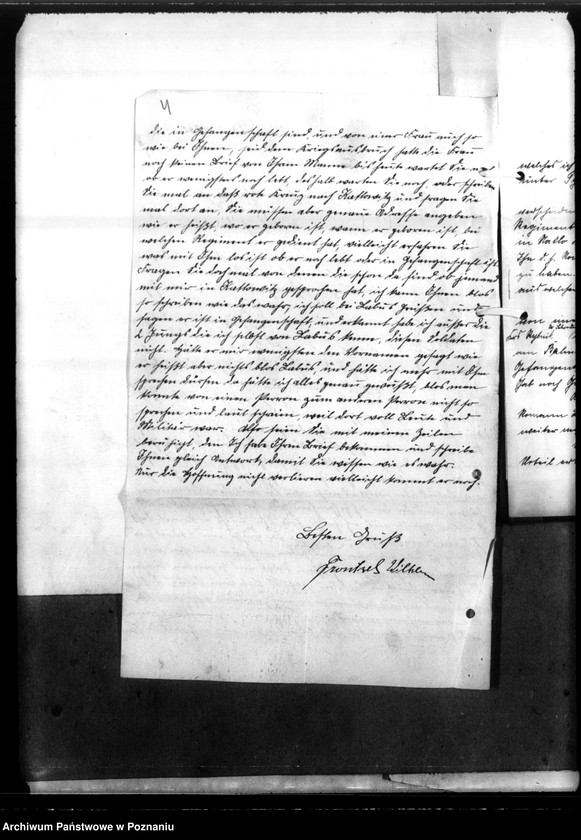 4
die in Gefangenschaft sind, und von einer Frau auch so
wie bei Ihnen, seid dem Kriegsausbruch hatte die Frau
noch keinen Brief von Ihrem Manne bis heute wartet Sie
ob er wenigstens noch lebt, deshalb warten Sie noch, oder schreiben
Sie mal an daß rote Kreuz nach Kattowitz und fragen Sie
mal dort an, Sie müssen aber genaue Adresse angeben
wie er heißt, wo er geboren ist, wann er geboren ist, bei
welchen Regiment er gedient hat, vielleicht erfahren Sie
was mit Ihm los ist ob er noch lebt oder in Gefangenschaft ist.
Fragen Sie doch mal von denen die schon da sind ob jemand
mit mir in Kattowitz gesprochen hat, ich kann Ihnen blos
so schreiben wie das wahr, ich soll die Labus Grüßen und
sagen er ist in Gefangenschaft, und erkannt habe ich außer die
2 Jungs die ich selbst von Labus kenne, diesen Soldaten
nicht. Hätte er mir wenigstens den Vornamen gesagt wie
er heißt aber nichts blos Labus, und hätte ich mehr mit Ihm
sprechen dürfen da hätte ich alles genau gewußt, blos man
konnte von einem Perron zum anderen Perron nicht so
sprechen und laut schreien, weil dort voll Leute und
Militär war. Also sein Sie mit meinen Zeilen
beruhigt, den Ich habe Ihren Brief bekommen und schreibe
Ihnen gleich Antwort, damit Sie wissen wie es wahr.
Nur die Hoffnung nicht verlieren vielleicht kommt er noch.
Besten Gruß
Wilhelm
welches ich
Regiment
in
zu haben
aus welchen
an
Gefangen
hat noch
weiter
Urteil er
Archiwum Państwowe w Poznaniu